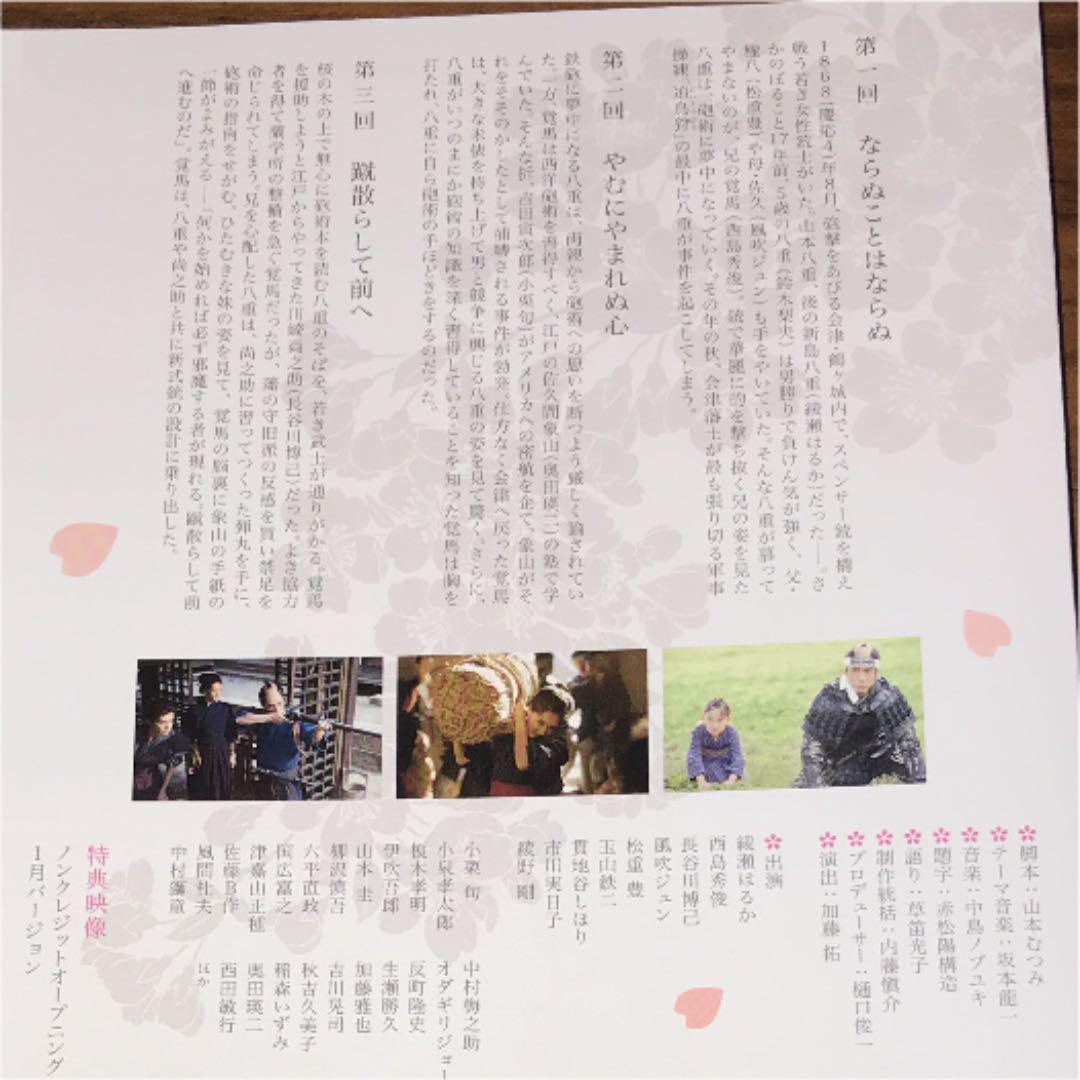 第一回　ならぬことはならぬ
1868(慶応4)年8月、砲撃をあびる会津・鶴ヶ城内で、スペンサー銃を構え
戦う若き女性銃士がいた。山本八重、後の新島八重(綾瀬はるか)だった――。さ
かのぼること17年前。5歳の八重(鈴木梨央)は男勝りで負けん気が強く、父・
権八(松重豊)や母・佐久(風吹ジュン)も手をやいていた。そんな八重が慕って
やまないのが、兄の覚馬(西島秀俊)。銃で華麗に的を撃ち抜く兄の姿を見た
八重は、砲術に夢中になっていく。その年の秋、会津藩士が最も張り切る軍事
操練、「追鳥狩」の最中に八重が事件を起こしてしまう。
第二回　やむにやまれぬ心
鉄砲に夢中になる八重は、両親から砲術への思いを断つよう厳しく諭されてい
た。一方、覚馬は西洋砲術を習得すべく、江戸の佐久間象山(奥田瑛二)の塾で学
んでいた。そんな折、吉田寅次郎(小栗旬)がアメリカへの密航を企て、象山がそ
れをそそのかしたとして捕縛される事件が勃発。仕方なく会津へ戻った覚馬
は、大きな米俵を持ち上げて男と競争に興じる八重の姿を見て驚く。さらに、
八重がいつのまにか砲術の知識を深く習得していることを知った覚馬は胸を
打たれ、八重に自ら砲術の手ほどきをするのだった。
第三回　蹴散らして前へ
桜の木の上で熱心に砲術本を読む八重のそばを、若き武士が通りがかる。覚馬
を援助しようと江戸からやってきた川崎尚之助(長谷川博己)だった。よき協力
者を得て蘭学所の整備を急ぐ覚馬だったが、藩の守旧派の反感を買い禁足を
命じられてしまう。兄を心配した八重は、尚之助に習ってつくった弾丸を手に、
砲術の指南をせがむ。ひたむきな妹の姿を見て、覚馬の脳裏に象山の手紙の
一節がよみがえる――「何かを始めれば必ず邪魔する者が現れる。蹴散らして前
へ進むのだ」。覚馬は、八重や尚之助と共に新式銃の設計に乗り出した。
脚本：山本むつみ
テーマ音楽：坂本龍一
音楽：中島ノブユキ
題字：赤松陽構造
語り：草笛光子
制作統括：内藤愼介
プロデューサー：樋口俊一
演出：加藤 拓
出演
綾瀬はるか
西島秀俊
長谷川博己
風吹ジュン
松重 豊
玉山鉄二
貫地谷しほり
市川実日子
綾野 剛
小栗 旬　中村梅之助
小泉孝太郎　オダギリジョー
榎木孝明　反町隆史
伊吹吾郎　生瀬勝久
山本 圭　加藤雅也
柳沢慎吾　吉川晃司
六平直政　秋吉久美子
国広富之　稲森いずみ
津嘉山正種　奥田瑛二
佐藤B作　西田敏行
風間杜夫　ほか
中村獅童
特典映像
ノンクレジットオープニング
1月バージョン